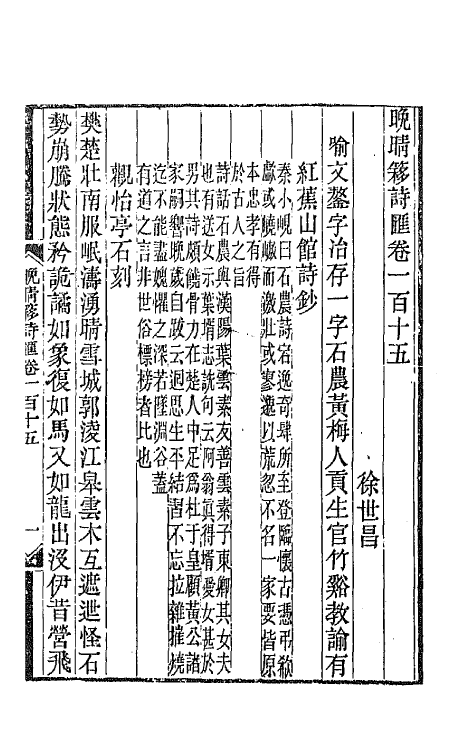 晚晴簃詩匯卷一百十五
徐世昌
喻文鏊字治存一字石農黃梅人貢生官竹谿教諭有
紅蕉山館詩鈔
秦小峴曰石農詩名逸奇肆所至登臨懷古憑弔欷
歔或嶔崎而激壯或寥邈以荒忽不名一家要皆原
本忠孝有得
於古人之旨
詩話石農與漢陽葉雲素友善雲素子東卿其女夫
也有送女示葉壻志詵句云阿翁真得壻愛女甚於
男其詩頗饒骨力在楚人中足爲杜于皇顧黃公諸
家嗣響晚歲自跋云迴思生平結習不忘拉雜摧燒
迄不能盡媿懼之深若隆淵谷蓋
有道之言非世俗標榜者比也
觀怡亭石刻
樊楚壯南服岷濤湧晴雪城郭淩江皋雲木互遮迣怪石
勢崩騰狀態矜詭譎如象復如馬又如龍出沒伊昔營飛
晚晴簃詩匯卷一百十五
一